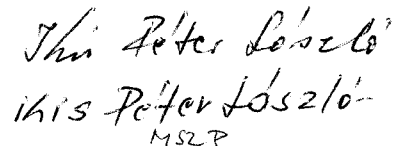 Péter László
Kis Péter László
MSZP